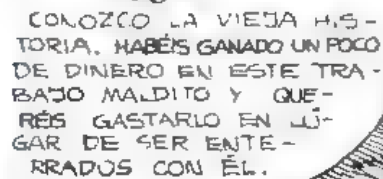 CONOZCO LA VIEJA HIS-
TORIA. HABÉIS GANADO UN POCO
DE DINERO EN ESTE TRA-
BAJO MALDITO Y QUE-
RÉIS GASTARLO EN LU-
GAR DE SER ENTE-
RRADOS CON ÉL.